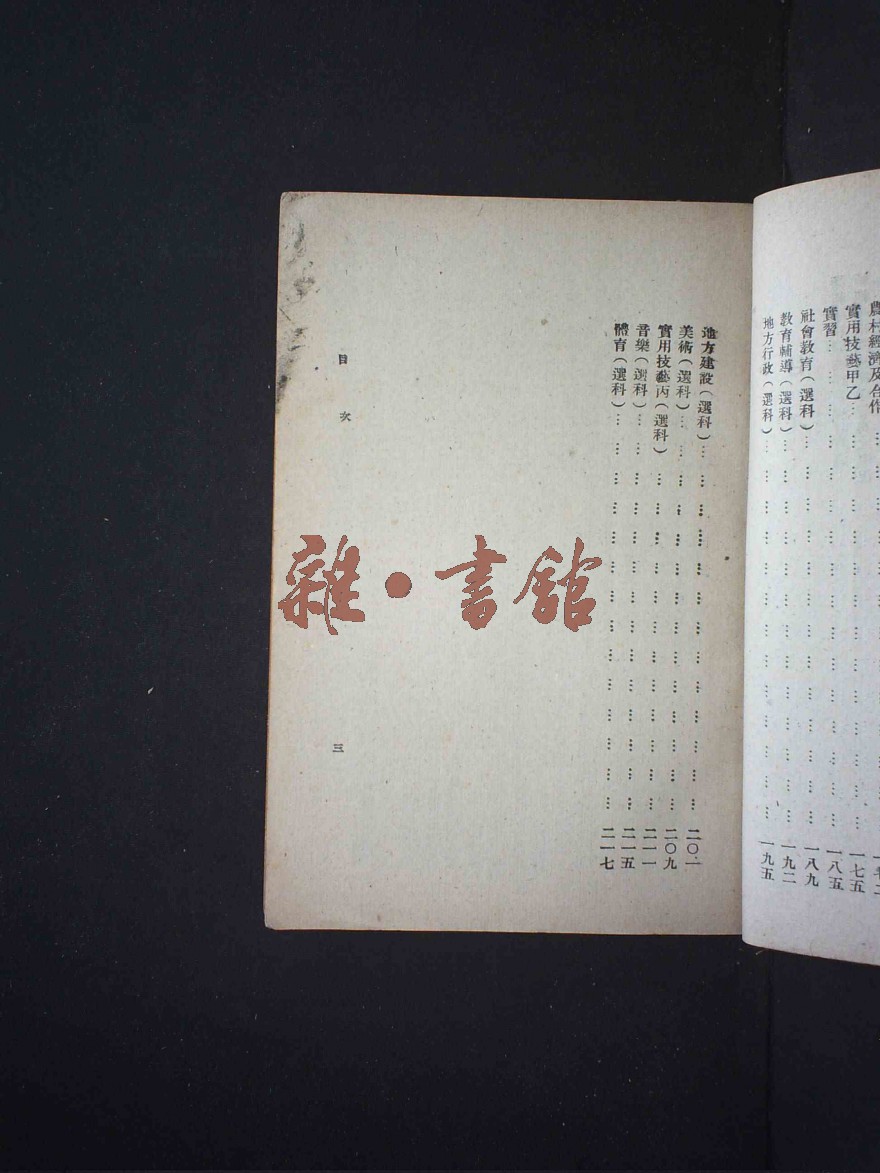 農村經濟及合作
實用技藝甲乙… … … … … … … … … … … … 一七五
實習… … … … … … … … … … … … 一八五
社會教育(選科)… … … … … … … … … … … 一八九
教育輔導(選科)… … … … … … … … … … … 一九二
地方行政(選科)… … … … … … … … … … … 一九五
地方建設(選科)… … … … … … … … … … … 二〇一
美術(選科)… … … … … … … … … … … 二〇九
實用技藝丙(選科)… … … … … … … … … … 二一一
音樂(選科)… … … … … … … … … … … 二一五
體育(選科)… … … … … … … … … … … 二一七
目次
三
雜·書館